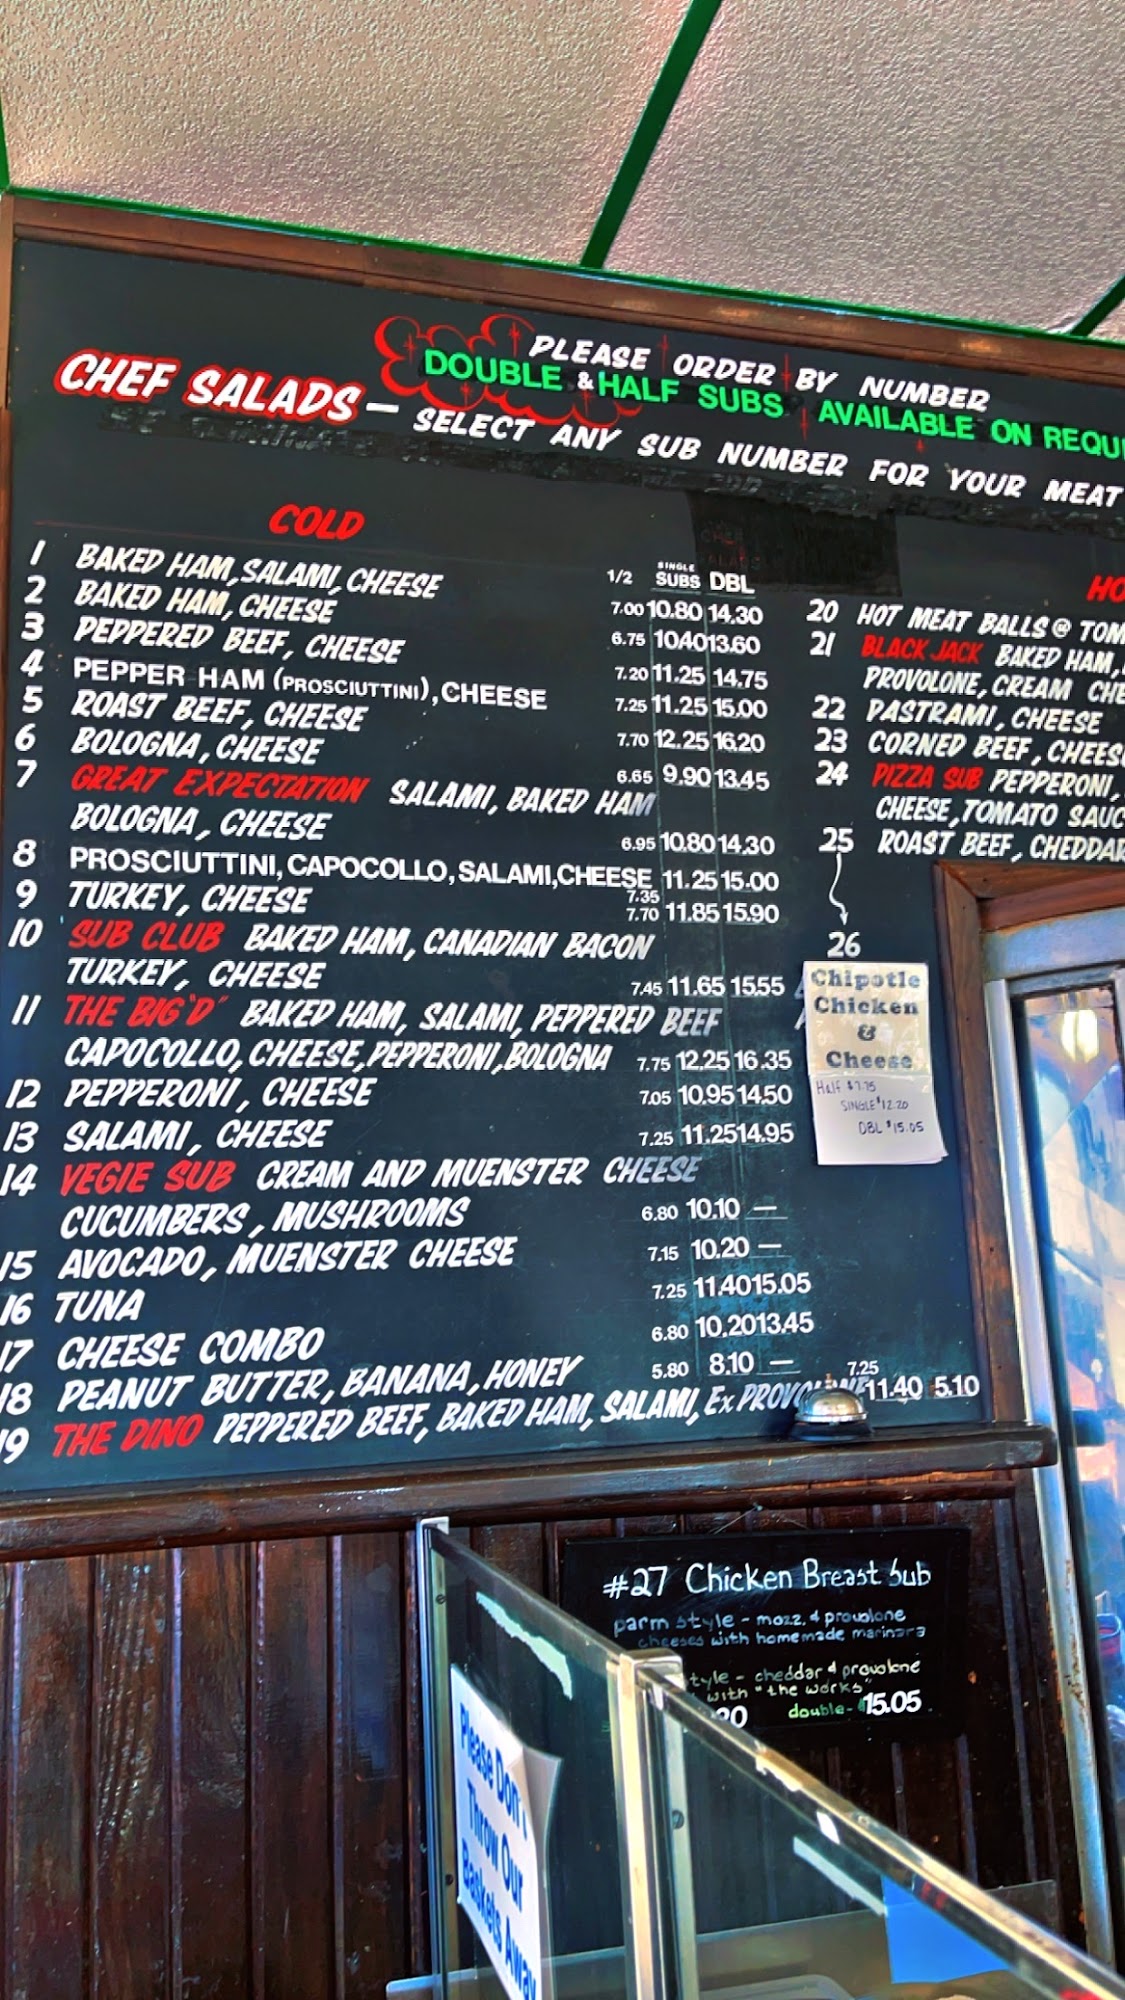 PLEASE ORDER BY NUMBER
DOUBLE & HALF SUBS AVAILABLE ON REQU
CHEF SALADS – SELECT ANY SUB NUMBER FOR YOUR MEAT
COLD
1/2 SINGLE SUBS DBL
1 BAKED HAM, SALAMI, CHEESE 7.00 10.80 14.30
2 BAKED HAM, CHEESE 6.75 10.40 13.60
3 PEPPERED BEEF, CHEESE 7.20 11.25 14.75
4 PEPPER HAM (PROSCIUTTINI), CHEESE 7.25 11.25 15.00
5 ROAST BEEF, CHEESE 7.70 12.25 16.20
6 BOLOGNA, CHEESE 6.65 9.90 13.45
7 GREAT EXPECTATION SALAMI, BAKED HAM
BOLOGNA, CHEESE 6.95 10.80 14.30
8 PROSCIUTTINI, CAPOCOLLO, SALAMI, CHEESE 7.35 11.25 15.00
9 TURKEY, CHEESE 7.70 11.85 15.90
10 SUB CLUB BAKED HAM, CANADIAN BACON
TURKEY, CHEESE 7.45 11.65 15.55
11 THE BIG "D" BAKED HAM, SALAMI, PEPPERED BEEF
CAPOCOLLO, CHEESE, PEPPERONI, BOLOGNA 7.75 12.25 16.35
12 PEPPERONI, CHEESE 7.05 10.95 14.50
13 SALAMI, CHEESE 7.25 11.25 14.95
14 VEGIE SUB CREAM AND MUENSTER CHEESE
CUCUMBERS, MUSHROOMS 6.80 10.10 —
15 AVOCADO, MUENSTER CHEESE 7.15 10.20 —
16 TUNA 7.25 11.40 15.05
17 CHEESE COMBO 6.80 10.20 13.45
18 PEANUT BUTTER, BANANA, HONEY 5.80 8.10 —
19 THE DINO PEPPERED BEEF, BAKED HAM, SALAMI, Ex PROVOLONE 7.25 11.40 5.10
HO
20 HOT MEAT BALLS @ TOM
21 BLACK JACK BAKED HAM,
PROVOLONE, CREAM CHE
22 PASTRAMI, CHEESE
23 CORNED BEEF, CHEES
24 PIZZA SUB PEPPERONI,
CHEESE, TOMATO SAUC
25 ROAST BEEF, CHEDDAR
26
Chipotle
Chicken
&
Cheese
Half $7.75
SINGLE $12.20
DBL $15.05
#27 Chicken Breast Sub
parm style - mozz. & provolone
cheeses with homemade marinara
tyle - cheddar & provolone
with "the works"
20 double- 15.05
Please Don't
Throw Our
Baskets Away